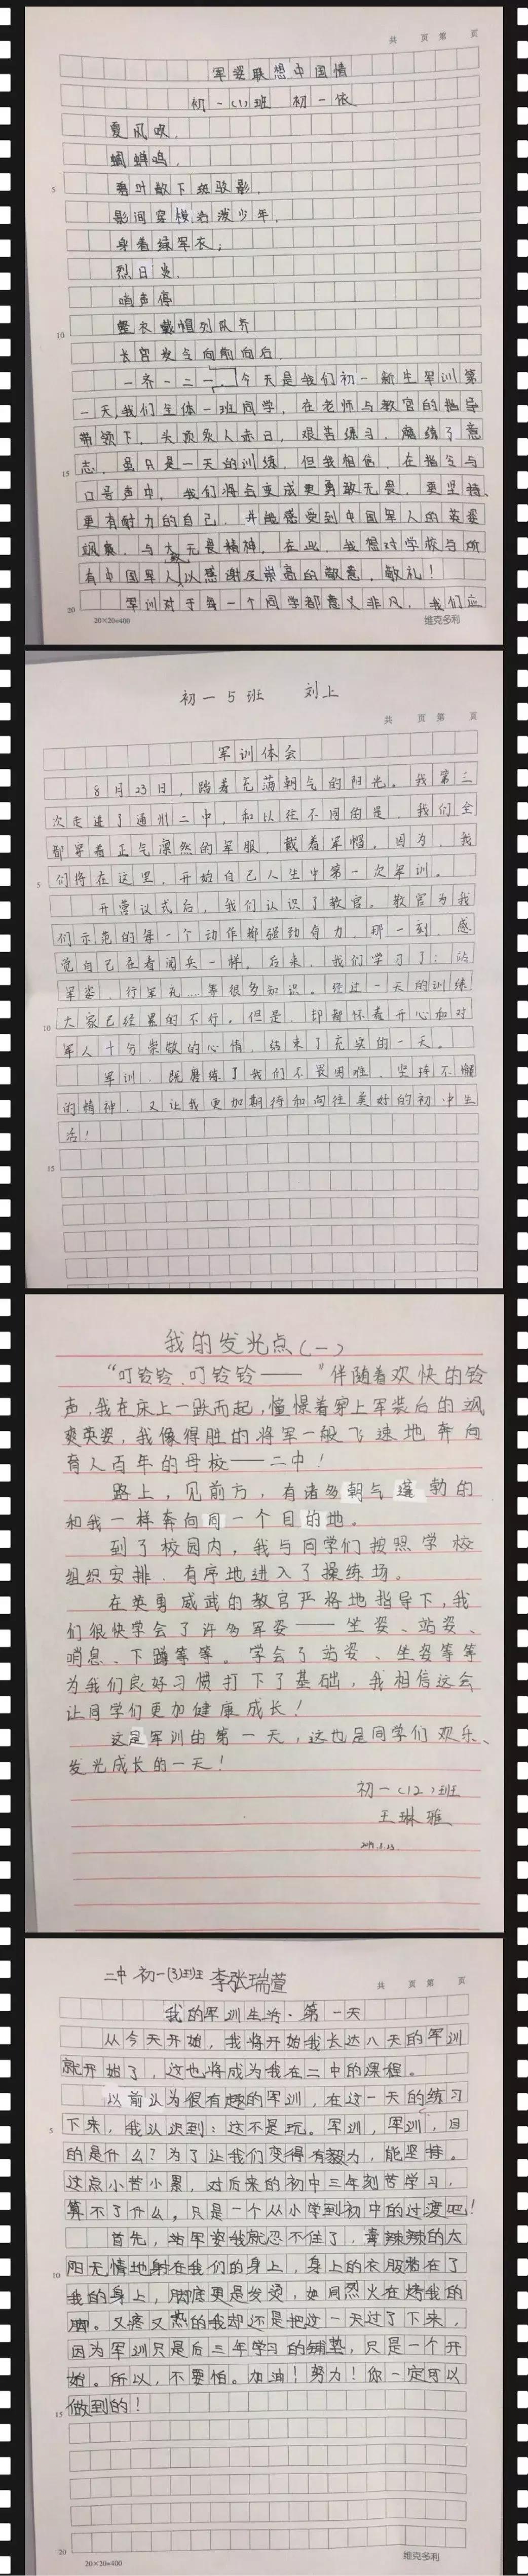 共 页 第 页
军姿联想中国情
初一(1)班 初一依
夏风吹,
蝈蝉鸣,
树叶散下斑驳影,
影间穿梭活泼少年,
身着绿军衣;
烈日炎,
哨声停
整衣戴帽列队齐
长官发令向前向后,
一齐一二一,今天是我们初一新生军训第
一天,我们全体一班同学,在老师与教官的指导
带领下,头顶炎人赤日,艰苦练习,磨练了意
5
10
15
志,虽只是一天的训练,但我相信,在指令与
口号声中,我们将会变成更勇敢无畏,更坚持、
更有耐力的自己,并能感受到中国军人的英姿
飒爽,与大无畏精神,在此,我想对学校与所
有中国军人致以感谢及崇高的敬意,敬礼!
20
军训对于每一个同学都意义非凡,我们应
20×20=400 维克多利
初一5班 刘上
共 页 第 页
军训体会
8月23日,踏着充满朝气的阳光。我第三
次走进了通州二中,和以往不同的是,我们全
都穿着正气凛然的军服,戴着军帽,因为,我
5
们将在这里,开始自己人生中第一次军训。
开营议式后,我们认识了教官。教官为我
们示范的每一个动作都强劲有力,那一刻,感
觉自己在看阅兵一样。后来,我们学习了:站
军姿,行军礼……等很多知识。经过一天的训练
10
大家已经累的不行。但是,却都怀着开心和对
军人十分崇敬的心情,结束了充实的一天。
军训,既磨练了我们不畏困难,坚持不懈
的精神,又让我更加期待和向往美好的初中生
活!
15
我的发光点(一)
“叮铃铃,叮铃铃——”伴随着欢快的铃
声,我在床上一跃而起,憧憬着穿上军装后的飒
爽英姿,我像得胜的将军一般飞速地奔向
育人百年的母校——二中!
路上,见前方,有诸多朝气蓬勃的
和我一样奔向同一个目的地。
到了校园内,我与同学们按照学校
组织安排,有序地进入了操练场。
在英勇威武的教官严格地指导下,我
们很快学会了许多军姿——坐姿、站姿、
哨息、下蹲等等。学会了站姿、坐姿等等
为我们良好习惯打下了基础,我相信这会
让同学们更加健康成长!
这是军训的第一天,这也是同学们欢乐、
发光成长的一天!
初一(12)班
王琳雅
二中 初一(3)班 李张瑞萱
共 页 第 页
我的军训生活·第一天
从今天开始,我将开始我长达八天的军训
就开始了,这也将成为我在二中的课程。
以前认为很有趣的军训,在这一天的练习
5
下来,我认识到:这不是玩。军训,军训,目
的是什么?为了让我们变得有毅力,能坚持。
这点小苦小累,对后来的初中三年刻苦学习,
算不了什么,只是一个从小学到初中的过渡吧!
首先,站军姿我就忍不住了,毒辣辣的太
10
阳无情地射在我们的身上,身上的衣服着在了
我的身上,脚底更是发烫,如同烈火在烤我的
脚。又疼又热的我却还是把这一天过了下来,
因为军训只是后三年学习的铺垫,只是一个开
始。所以,不要怕。加油!努力!你一定可以
15
做到的!
20
20×20=400 维克多利